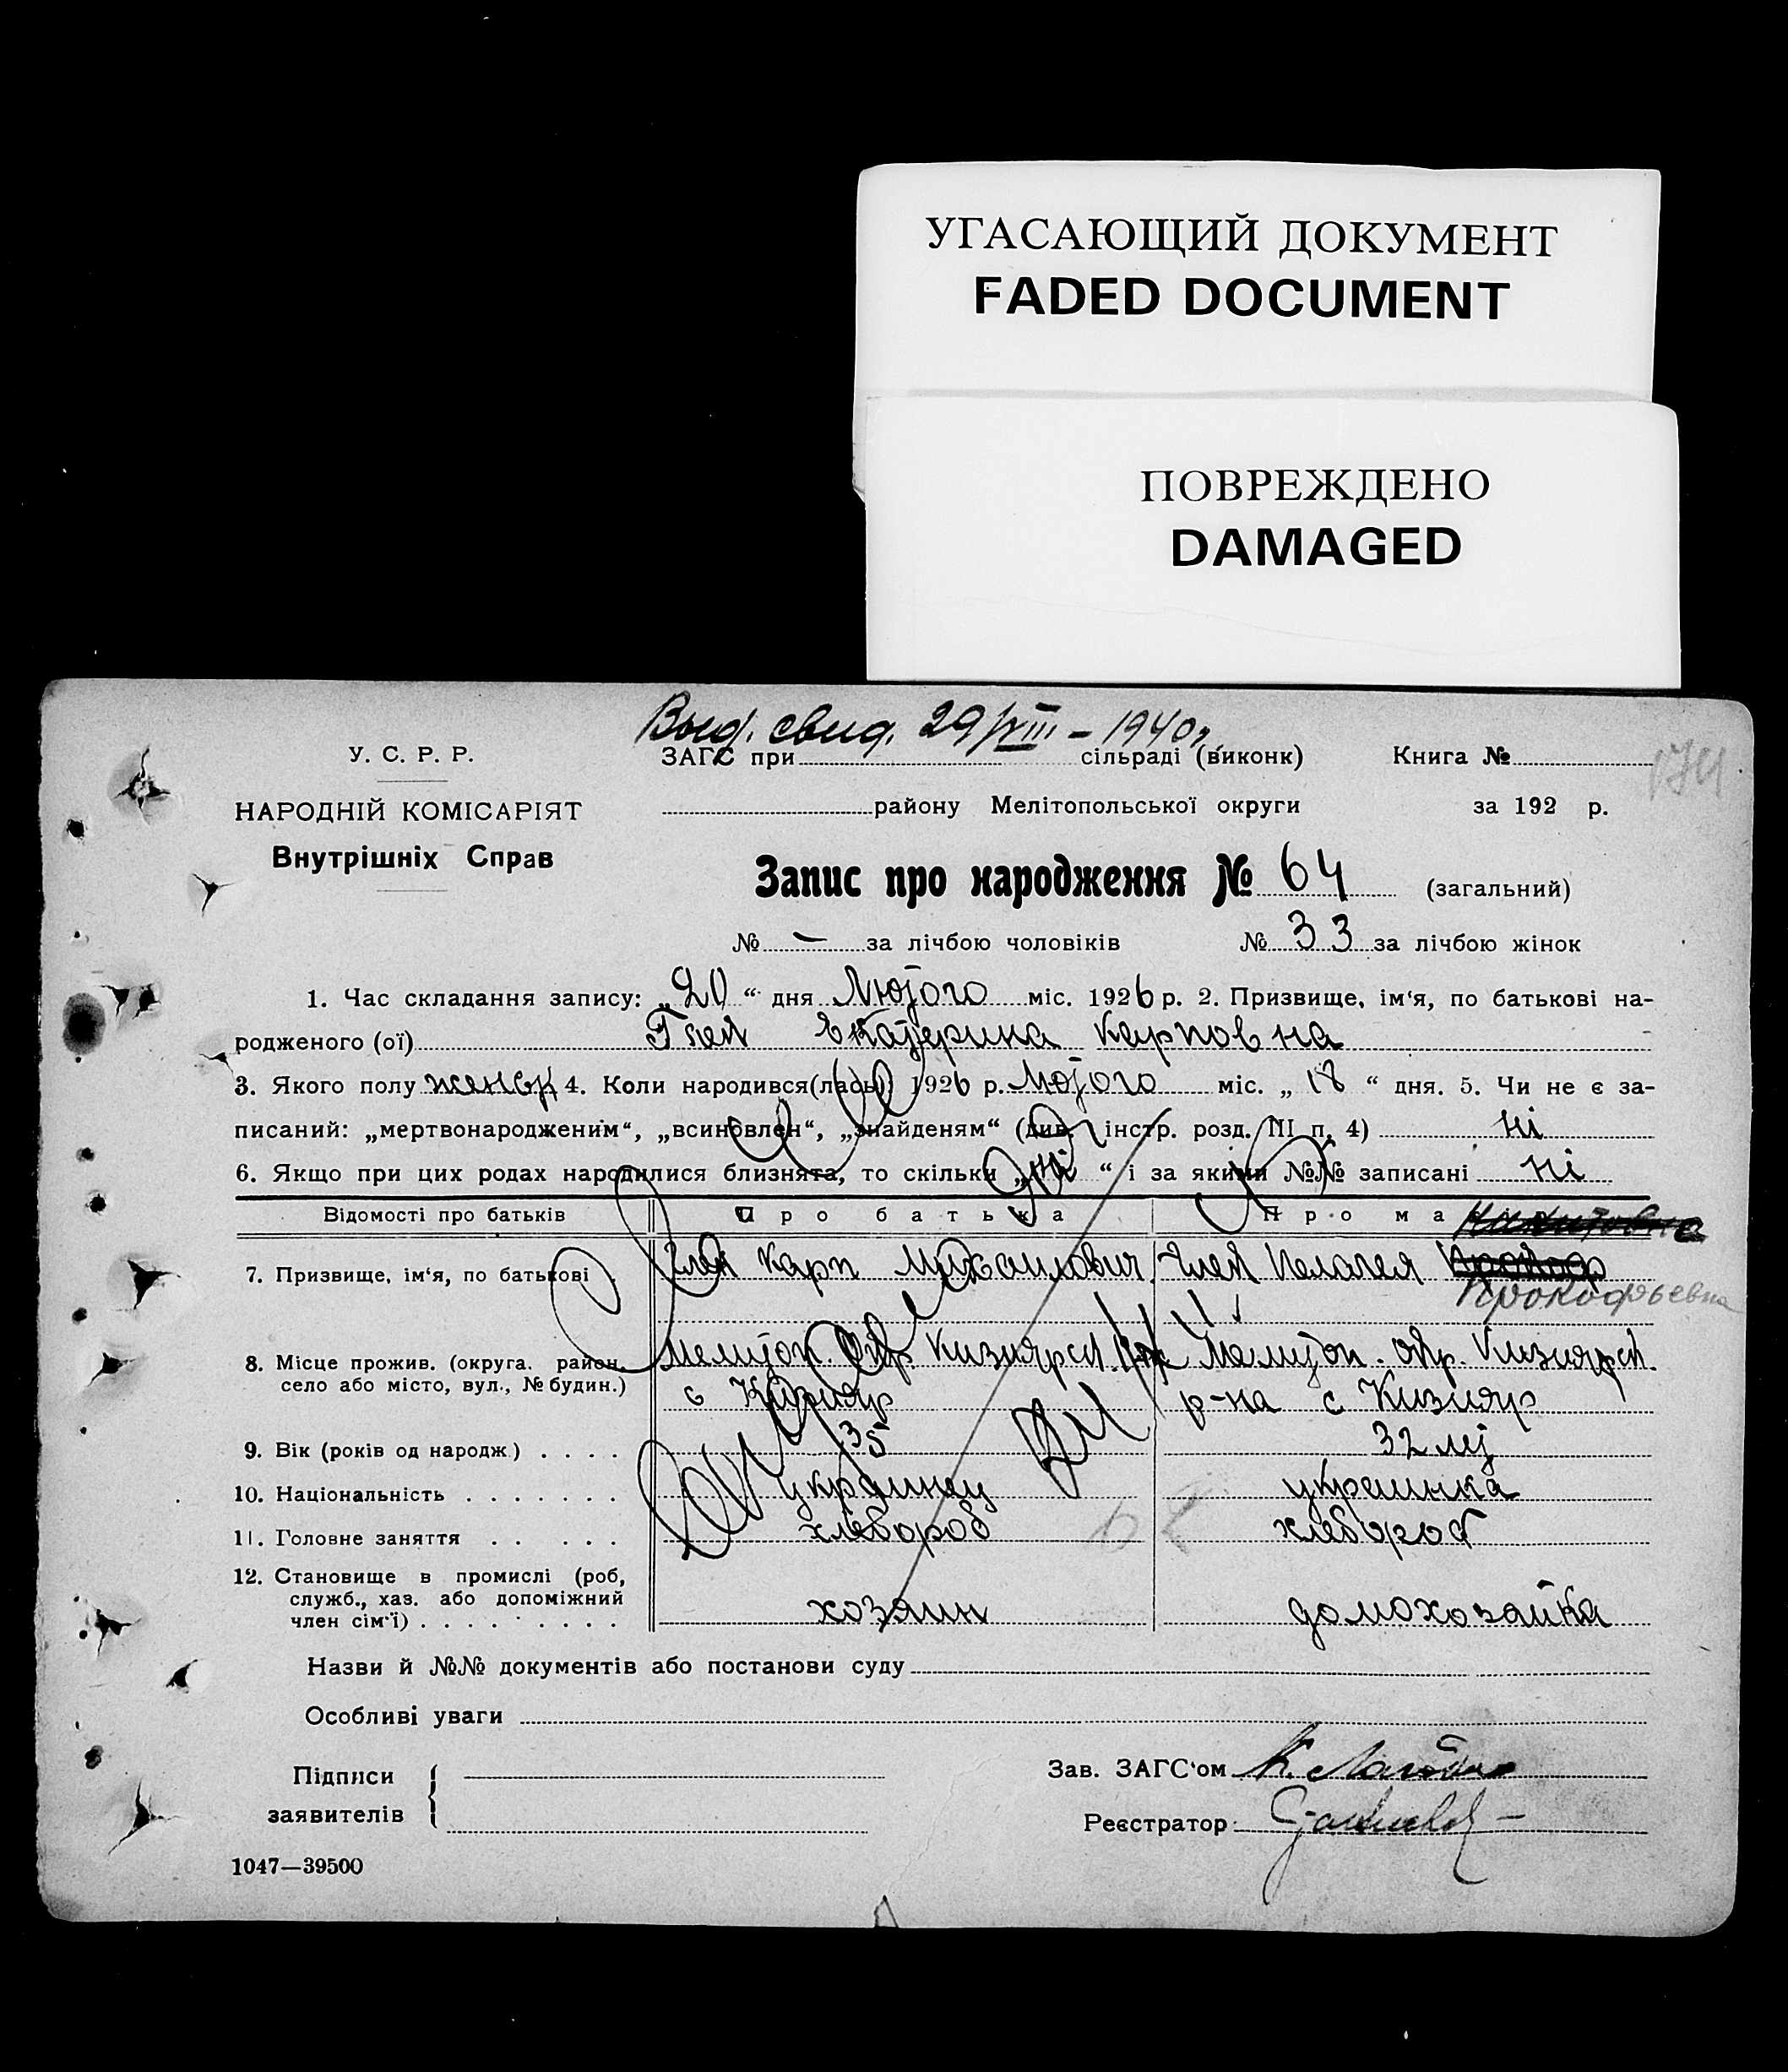 УГАСАЮЩИЙ ДОКУМЕНТ
FADED DOCUMENT
ПОВРЕЖДЕНО
DAMAGED
Выд. свид. 29/VIII – 1940 г.
У. С. Р. Р. ЗАГС при сільраді (виконк) Книга № 174
НАРОДНІЙ КОМІСАРІЯТ району Мелітопольської округи за 192 р.
Внутрішніх Справ
Запис про народження № 64 (загальний)
№ – за лічбою чоловіків № 33 за лічбою жінок
1. Час складання запису: „20“ дня Лютого міс. 1926 р. 2. Призвище, ім‘я, по батькові на-
родженого (ої) Екатерина Карповна
3. Якого полу женск 4. Коли народився(лась) 1926 р. Лютого міс. „18“ дня. 5. Чи не є за-
писаний: „мертвонародженим“, „всиновлен“, „знайденям“ (див. інстр. розд. III п. 4) ні
6. Якщо при цих родах народилися близнята, то скільки „ні“ і за якими №№ записані ні
Відомості про батьків Про батька Про ма
7. Призвище, ім‘я, по батькові Карп Михаилович Пелагея
Прокофьевна
8. Місце прожив. (округа. район, Мелитоп. окр. Кизиярск. Мелитоп. окр. Кизиярск.
село або місто, вул., № будин.) с Кизияр р-на с Кизияр
9. Вік (років од народж.) 35 32 лет
10. Національність украинец украинка
11. Головне заняття хлебороб хлебороб
12. Становище в промислі (роб,
служб., хаз. або допоміжний
член сім‘ї) хозяин домохозайка
Назви й №№ документів або постанови суду
Особливі уваги
Підписи Зав. ЗАГС‘ом
заявителів Реєстратор
1047—39500